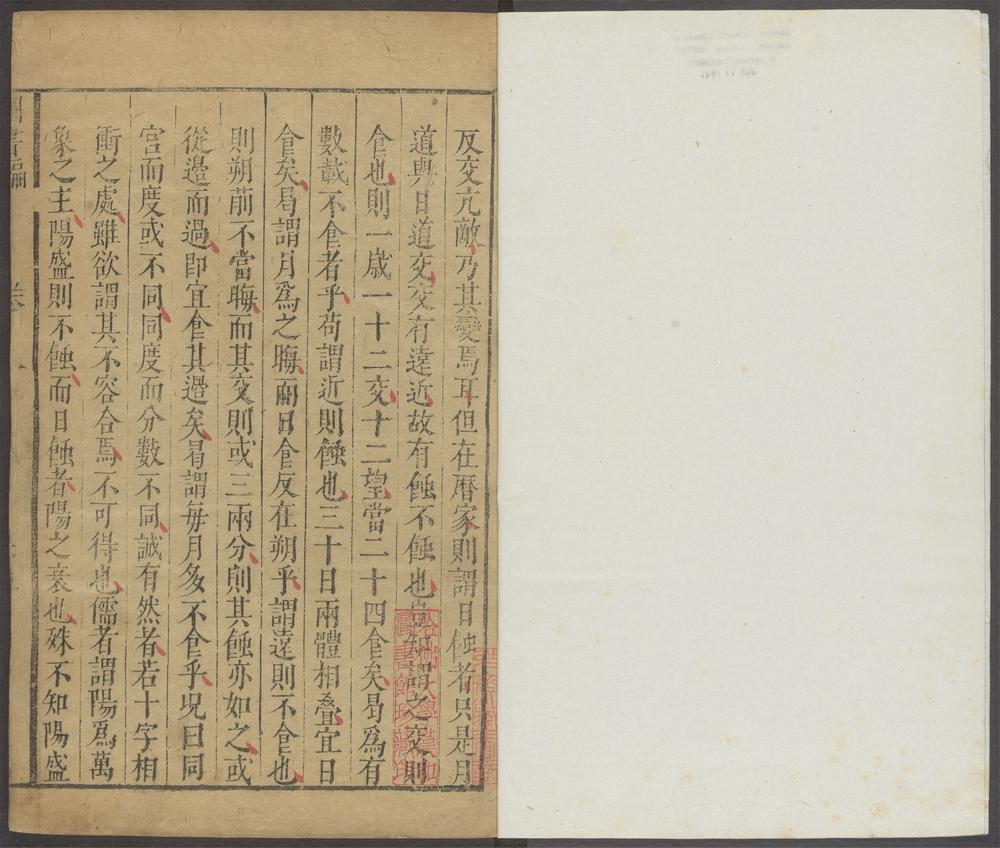 反交亢敵乃其變焉耳但在曆家則謂日蝕者只是月
道與日道交交有遠近故有蝕不蝕也豈知謂之交則
食也則一歲一十二交十二望當二十四食矣曷為有
數載不食者乎苟謂近則蝕也三十日兩體相疊宜日
食矣曷謂月爲之晦而日食反在朔乎謂遠則不食也
則朔前不當晦而其交則或三兩分則其蝕亦如之或
從邉而過即宜食其邉矣曷謂每月多不食乎况曰同
宫而度或不同同度而分數不同誠有然者若十字相
衝之處雖欲謂其不容合焉不可得也儒者謂陽爲萬
象之主陽盛則不蝕而日蝕者陽之衰也殊不知陽盛
圖書編
卷